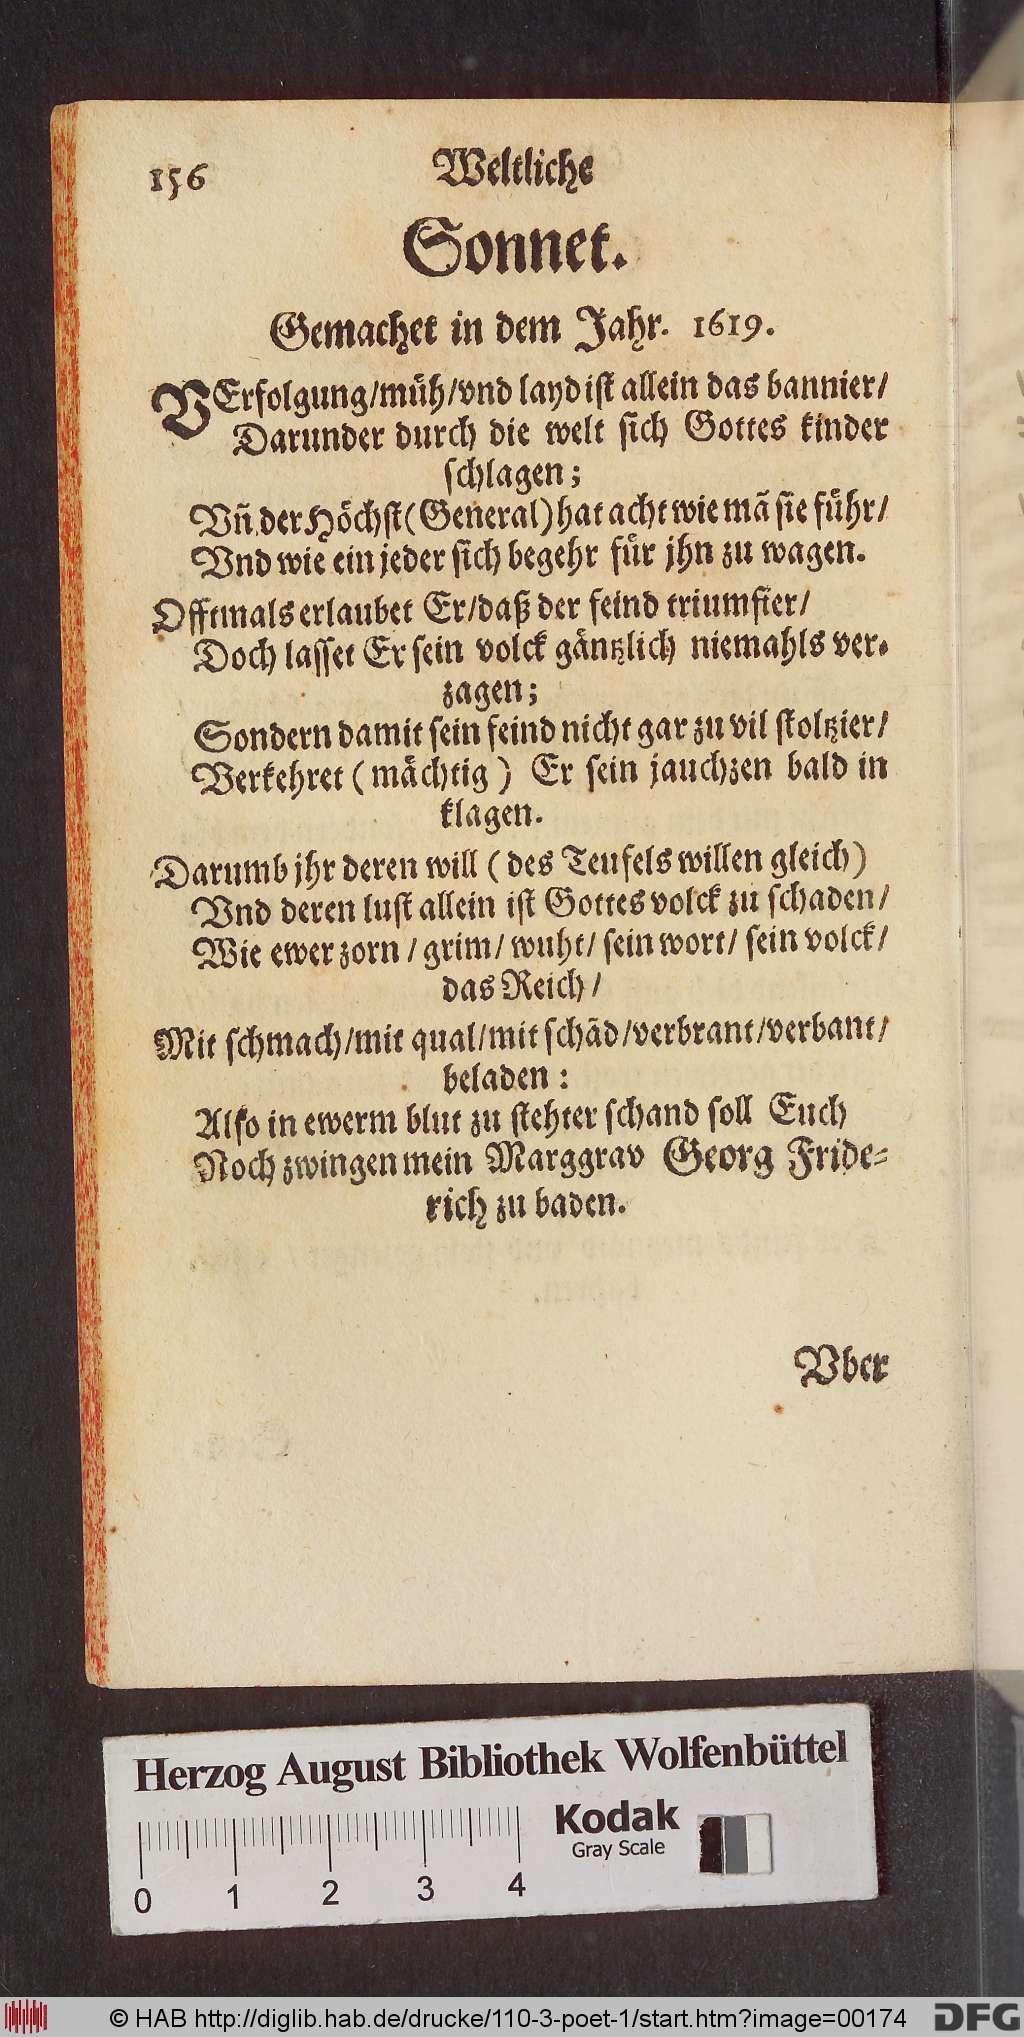 156 Weltliche
Sonnet.
Gemachet in dem Jahr. 1619.
VErfolgung/müh/vnd layd ist allein das bannier/
Darunder durch die welt sich Gottes kinder
schlagen;
Vñ der Höchst (General) hat acht wie mã sie führ/
Vnd wie ein jeder sich begehr für jhn zu wagen.
Offtmals erlaubet Er/daß der feind triumfier/
Doch lasset Er sein volck gäntzlich niemahls ver-
zagen;
Sondern damit sein feind nicht gar zu vil stoltzier/
Verkehret (mächtig) Er sein jauchzen bald in
klagen.
Darumb jhr deren will (des Teufels willen gleich)
Vnd deren lust allein ist Gottes volck zu schaden/
Wie ewer zorn/grim/wuht/sein wort/sein volck/
das Reich/
Mit schmach/mit qual/mit schãd/verbrant/verbant/
beladen:
Also in ewerm blut zu stehter schand soll Euch
Noch zwingen mein Marggrav Georg Fride-
rich zu baden.
Vber
Herzog August Bibliothek Wolfenbüttel
Kodak
Gray Scale
0 1 2 3 4
© HAB http://diglib.hab.de/drucke/110-3-poet-1/start.htm?image=00174
DFG